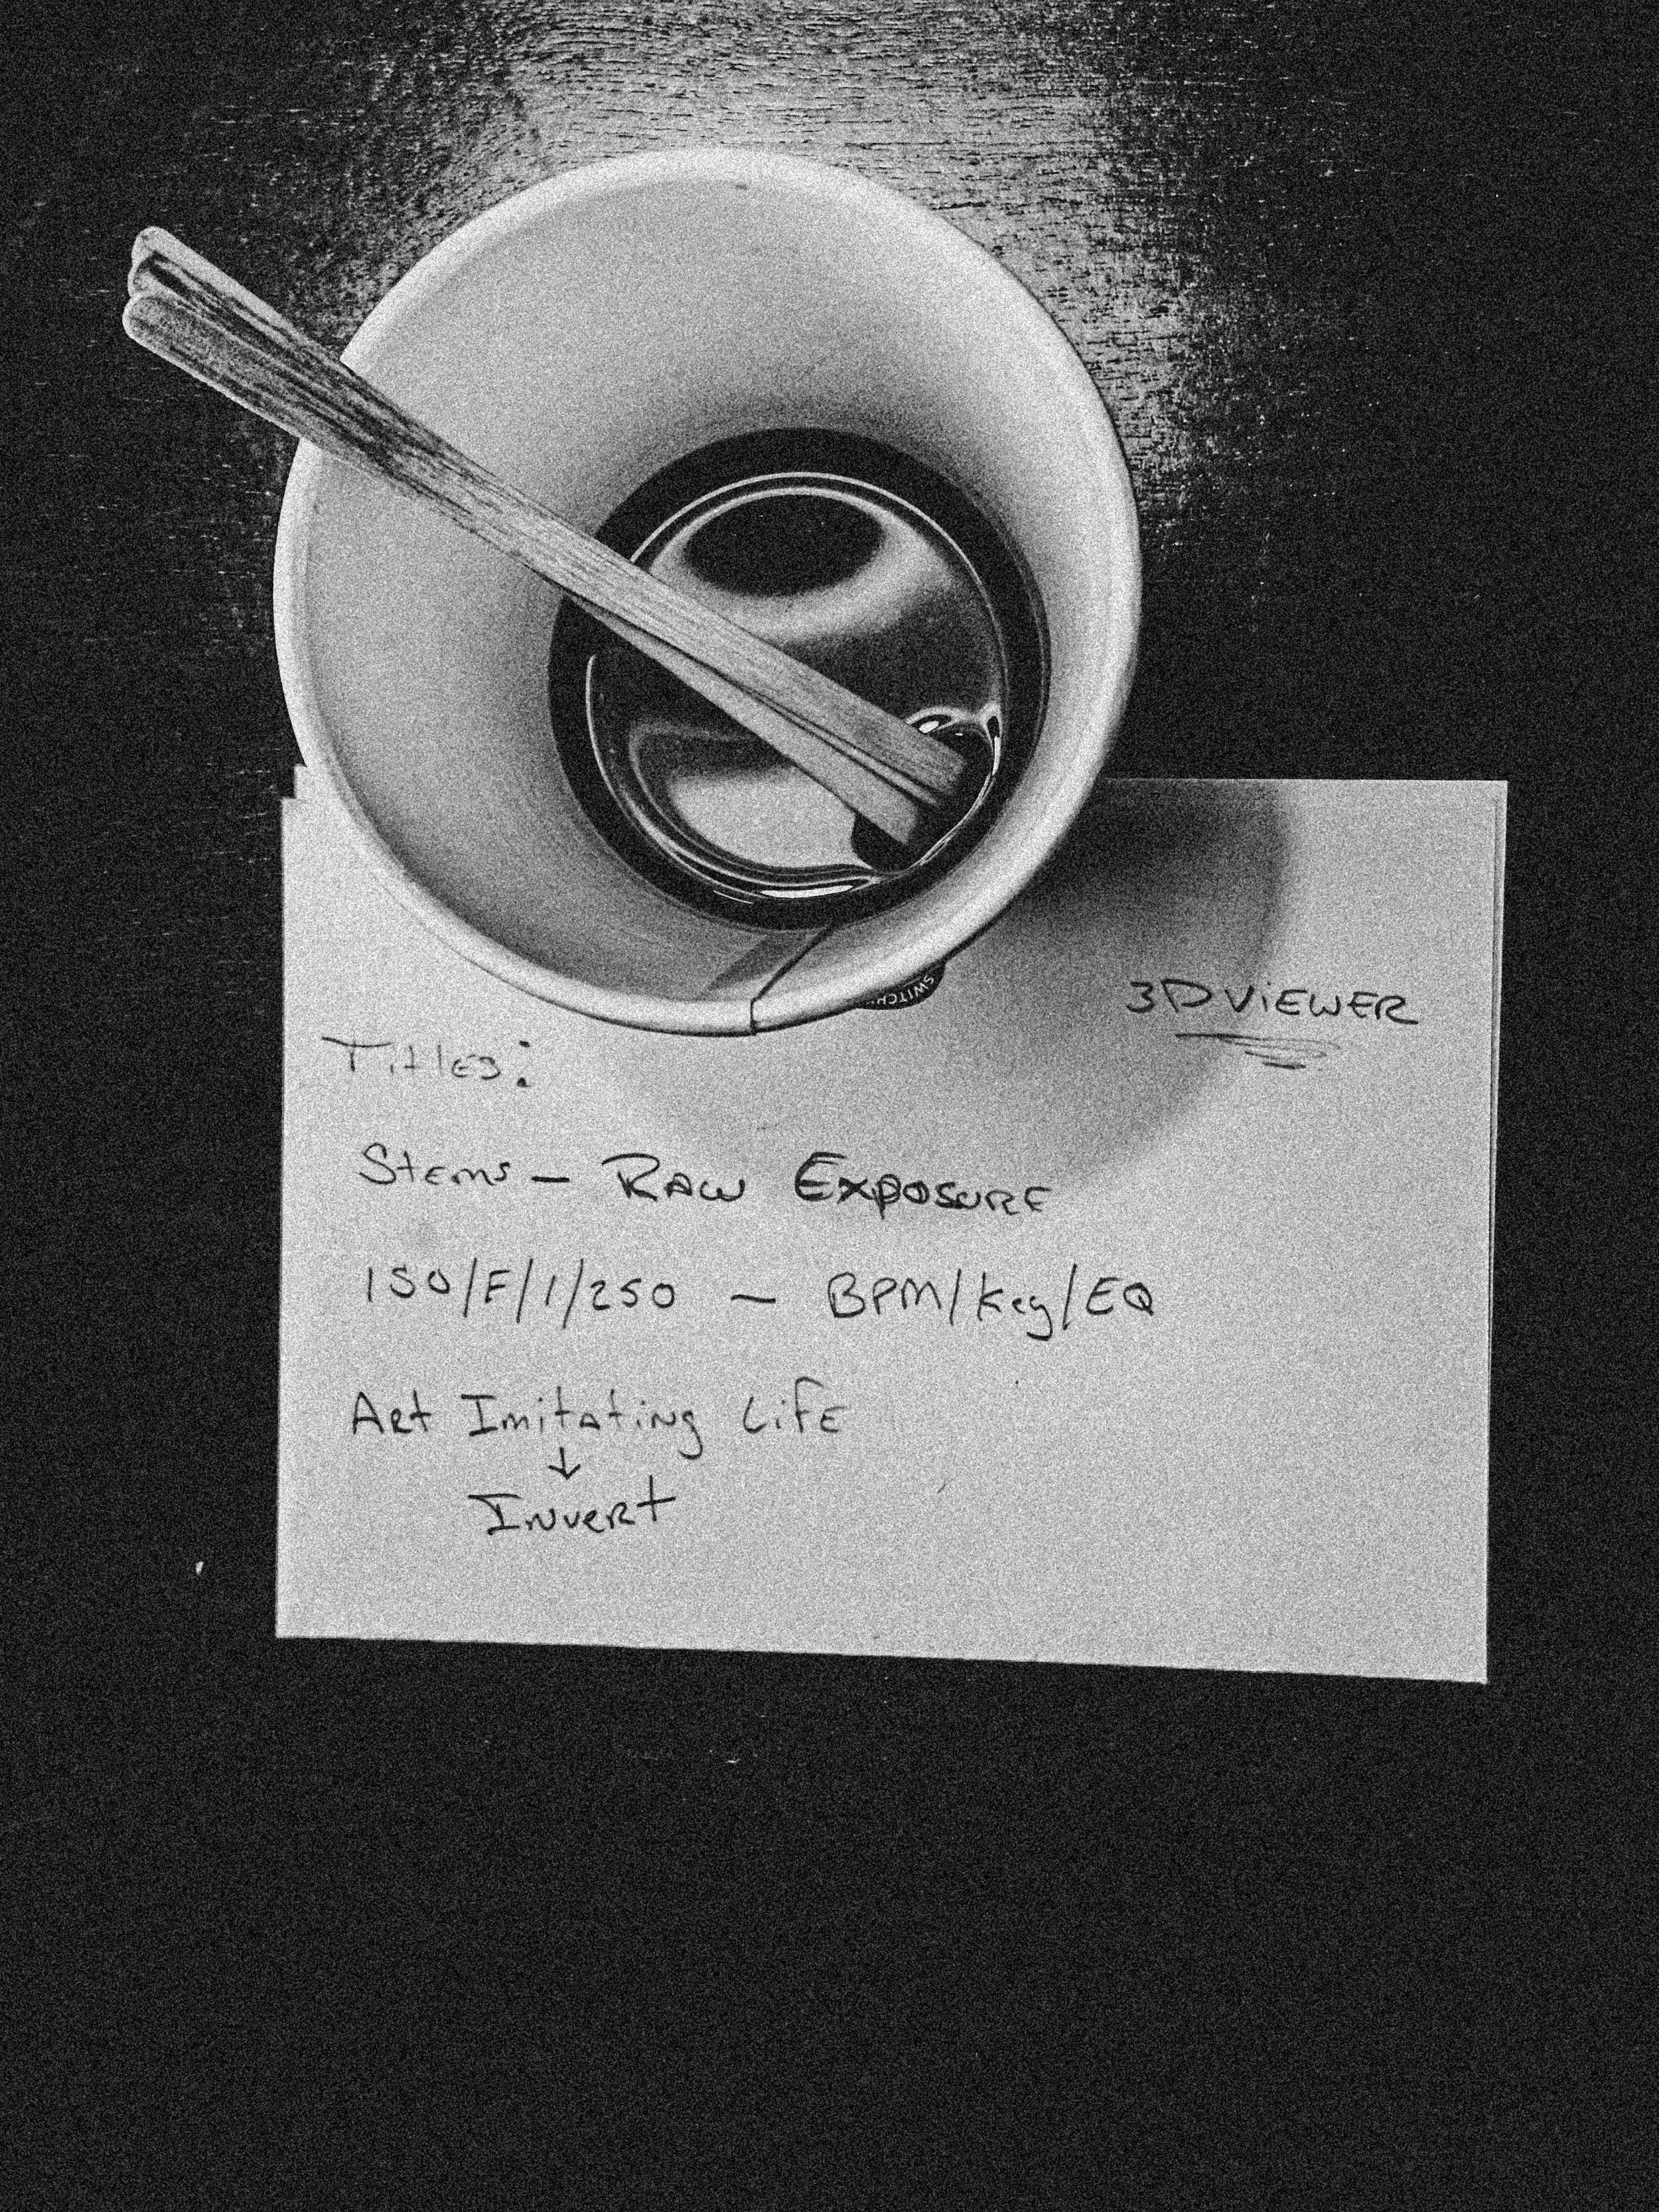 SWITCH
3D ViEWER
Titles:
Stems - Raw Exposure
ISO/F/1/250 - BPM/Key/EQ
Art Imitating Life
↓
Invert